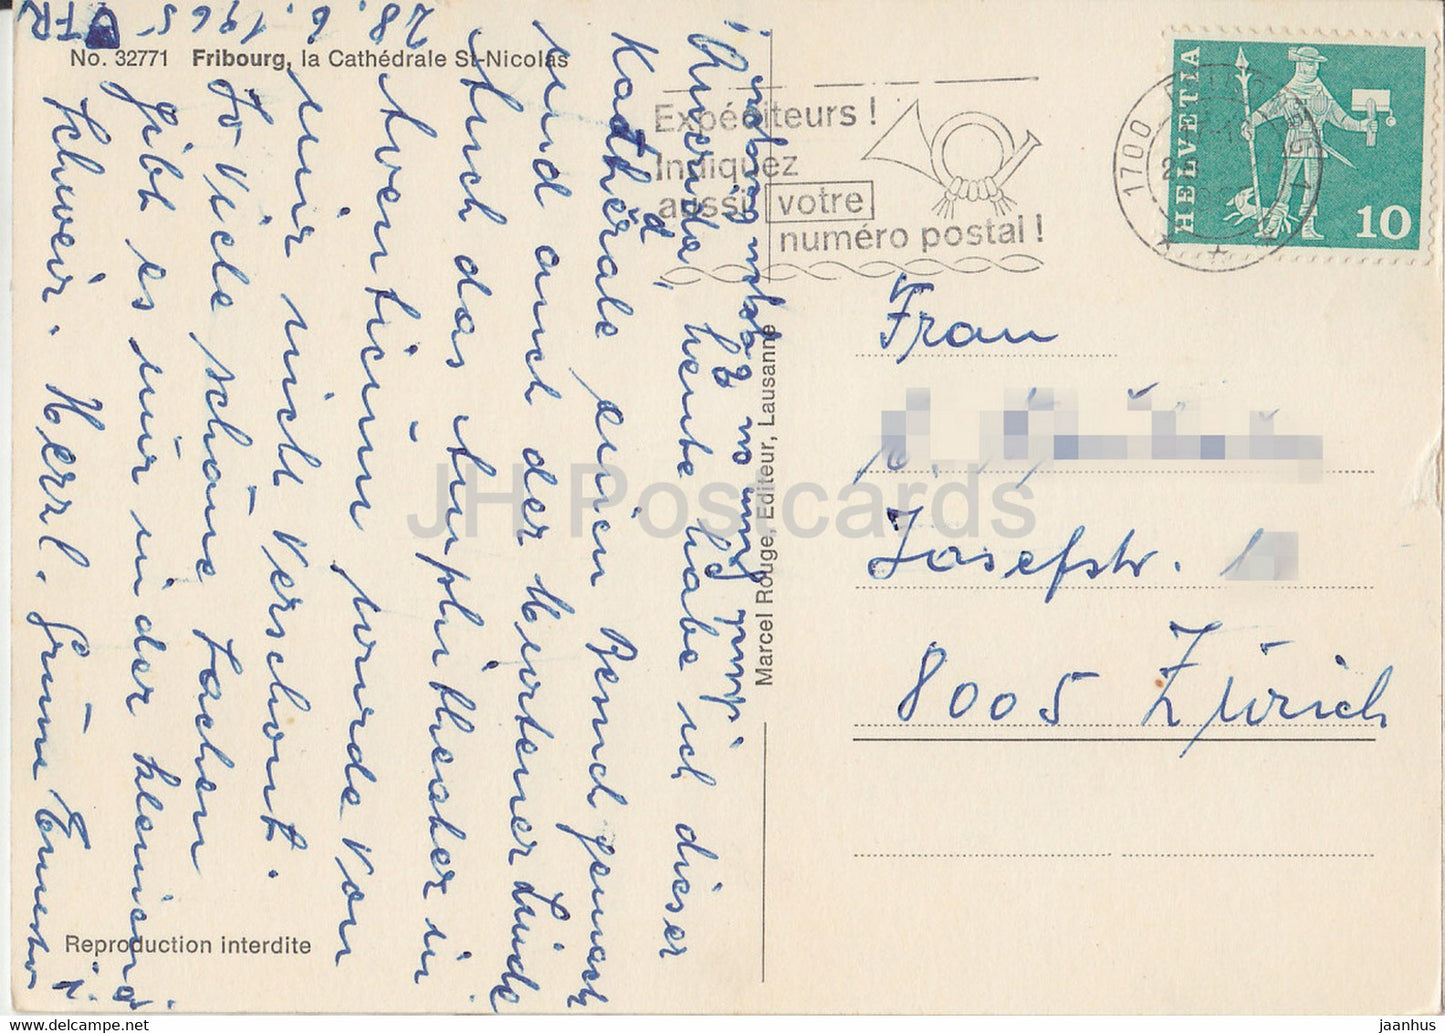 No. 32771 Fribourg, la Cathédrale St-Nicolas
28. 6. 1965
heute habe ich dieser
Kathedrale einen Besuch gemacht
und auch der Murtener Linde
Auch das Amphitheater in
Aventicum wurde von
mir nicht verschont.
So viele schöne Sachen
gibt es nur in der kleinen
Schweiz. Herzl. Grüsse Ernesto
Expéditeurs !
Indiquez
aussi votre
numéro postal !
1700
HELVETIA
10
Frau
Josefstr. 1
8005 Zürich
Marcel Rouge, Editeur, Lausanne
Reproduction interdite
JH Postcards
www.delcampe.net
jaanhus